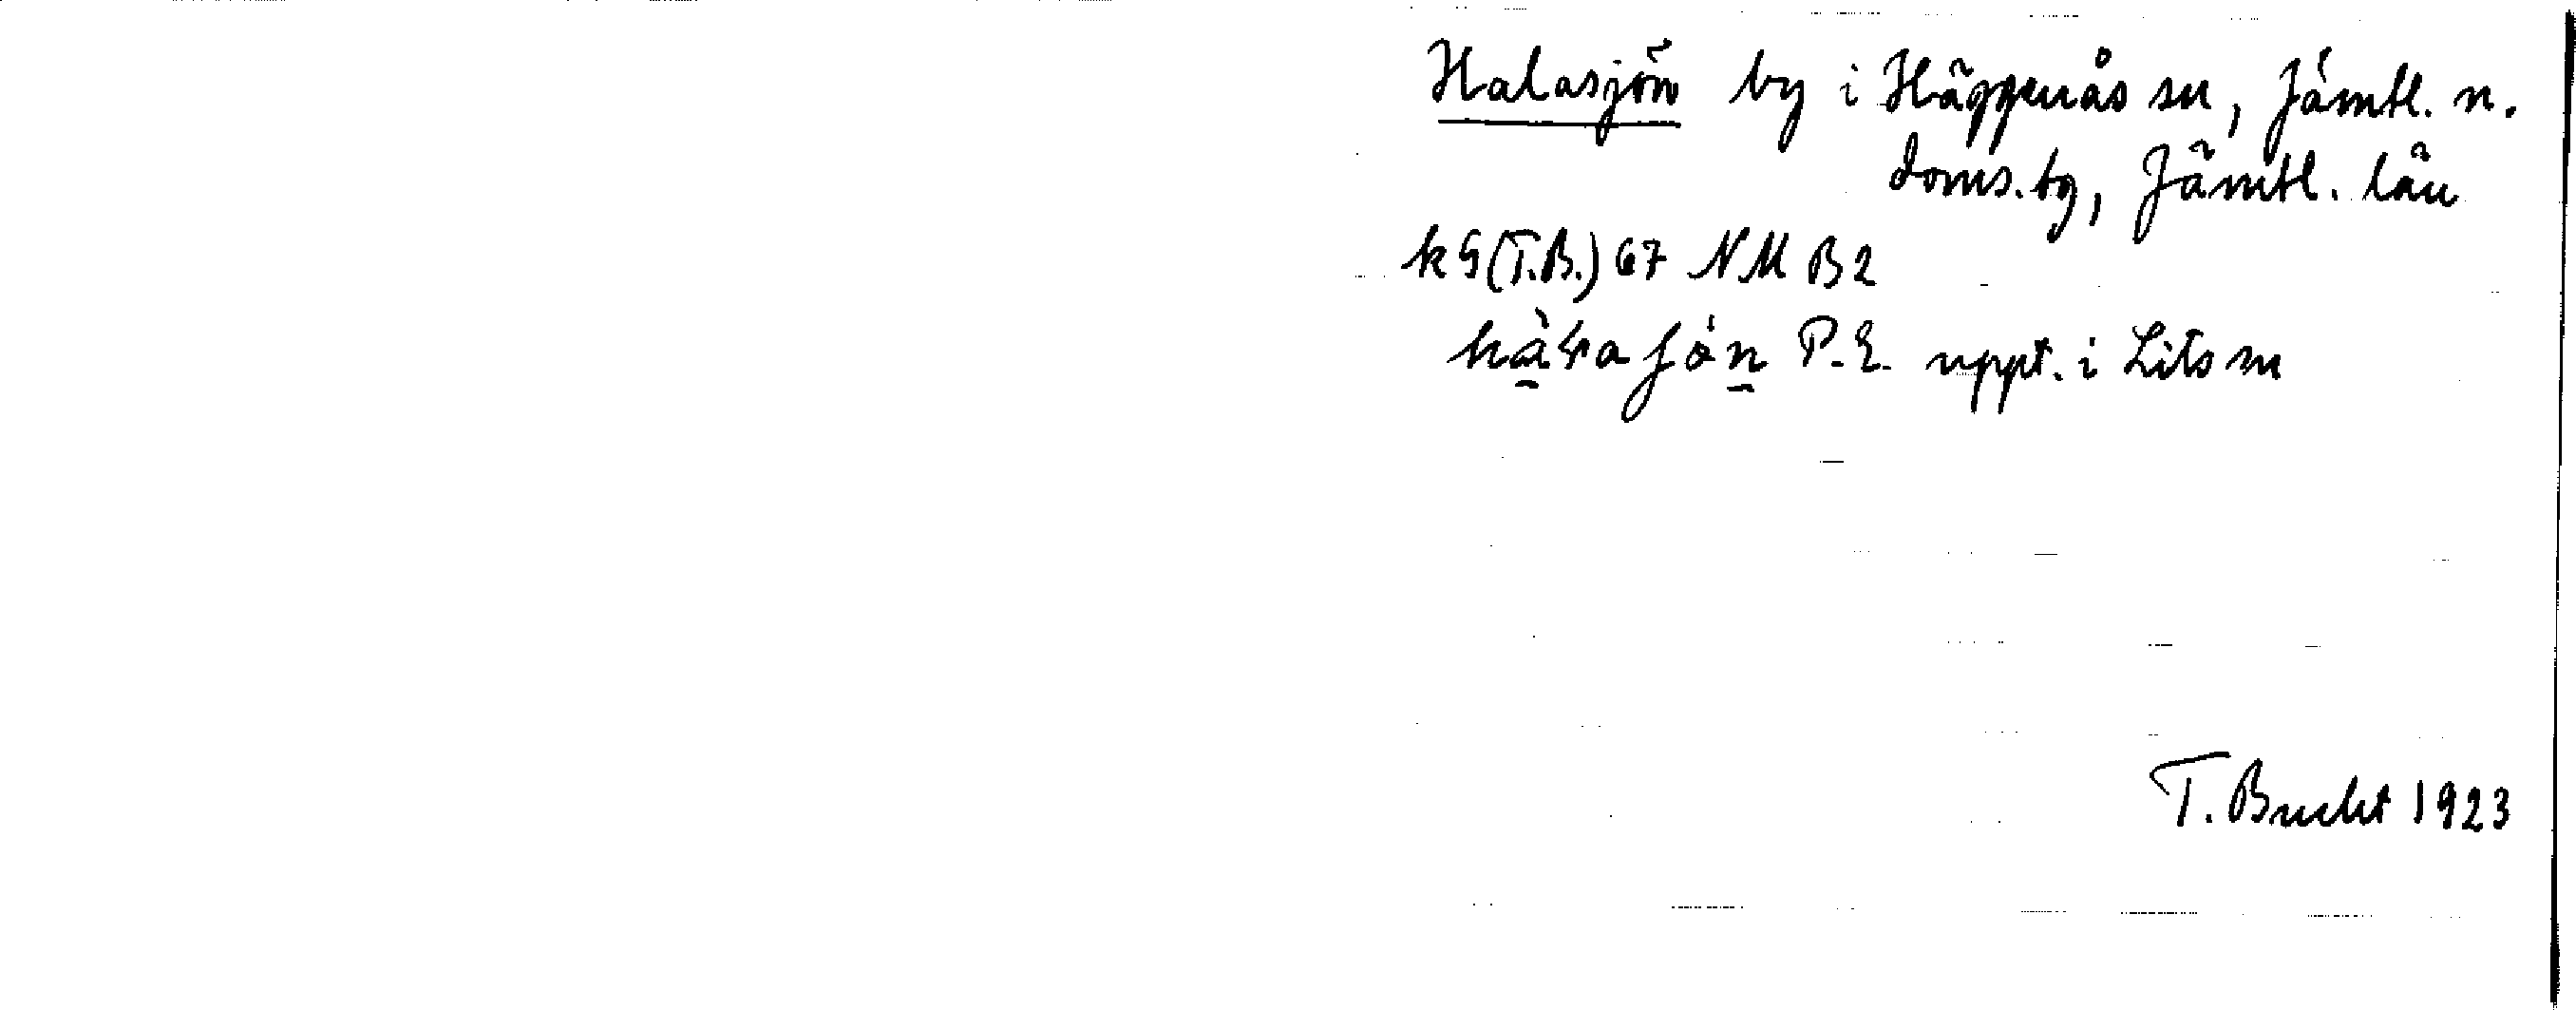 Halasjön by i Häggenås sn, Jämtl. n.
doms.bg, Jämtl. län
k G (T.B.) 67 NM B2
P.E. uppt. i Lits sn
T. Bucht 1923